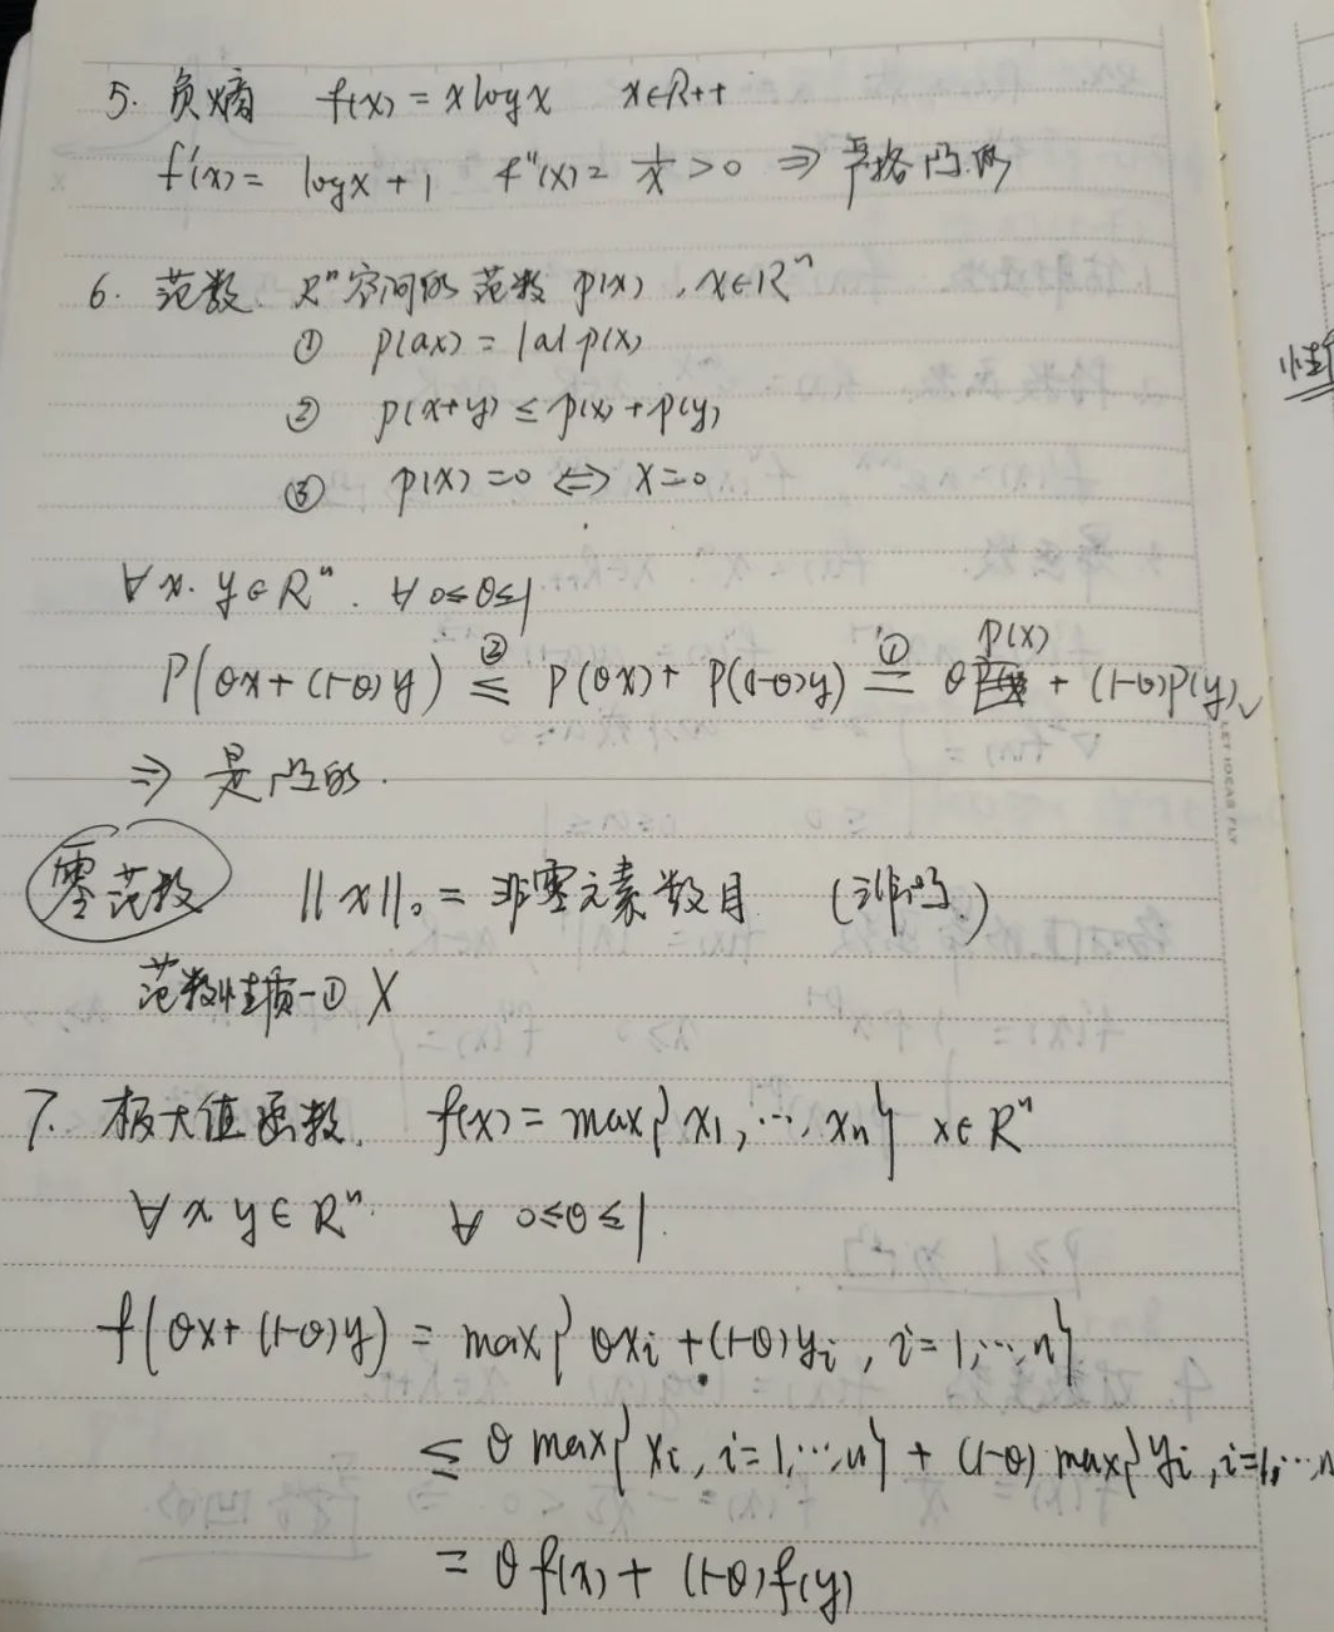 5. 负熵 f(x) = x log x x∈R++
f'(x) = log x + 1 f''(x) = 1/x > 0 ⇒ 严格凸的
6. 范数. Rⁿ空间的范数 p(x), x∈Rⁿ
① p(ax) = |a| p(x)
② p(x+y) ≤ p(x) + p(y)
③ p(x) = 0 ⇔ x = 0
∀ x. y∈Rⁿ. ∀ 0≤θ≤1
P(θx + (1-θ)y) ≤② P(θx) + P((1-θ)y) =① θ p(x) + (1-θ)p(y)
⇒ 是凸的.
零范数 ||x||₀ = 非零元素数目 (非凸.)
范数性质-① X
7. 极大值函数. f(x) = max{x₁, ..., xₙ} x∈Rⁿ
∀ x y∈Rⁿ. ∀ 0≤θ≤1.
f(θx + (1-θ)y) = max{θxᵢ + (1-θ)yᵢ, i=1, ..., n}
≤ θ max{xᵢ, i=1, ..., n} + (1-θ) max{yᵢ, i=1, ..., n
= θ f(x) + (1-θ) f(y)
LET IDEAS FLY